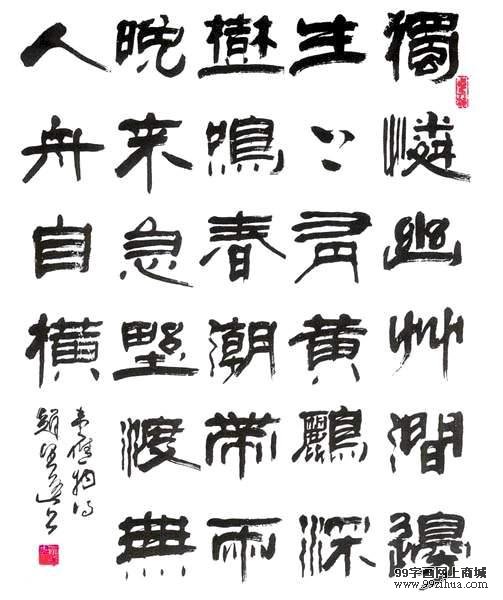 獨憐幽艸澗邊
生上有黃鸝深
樹鳴春潮帶雨
晚來急野渡無
人舟自橫
韋應物詩
趙望進書
99字画网上商城
www.99zihua.com